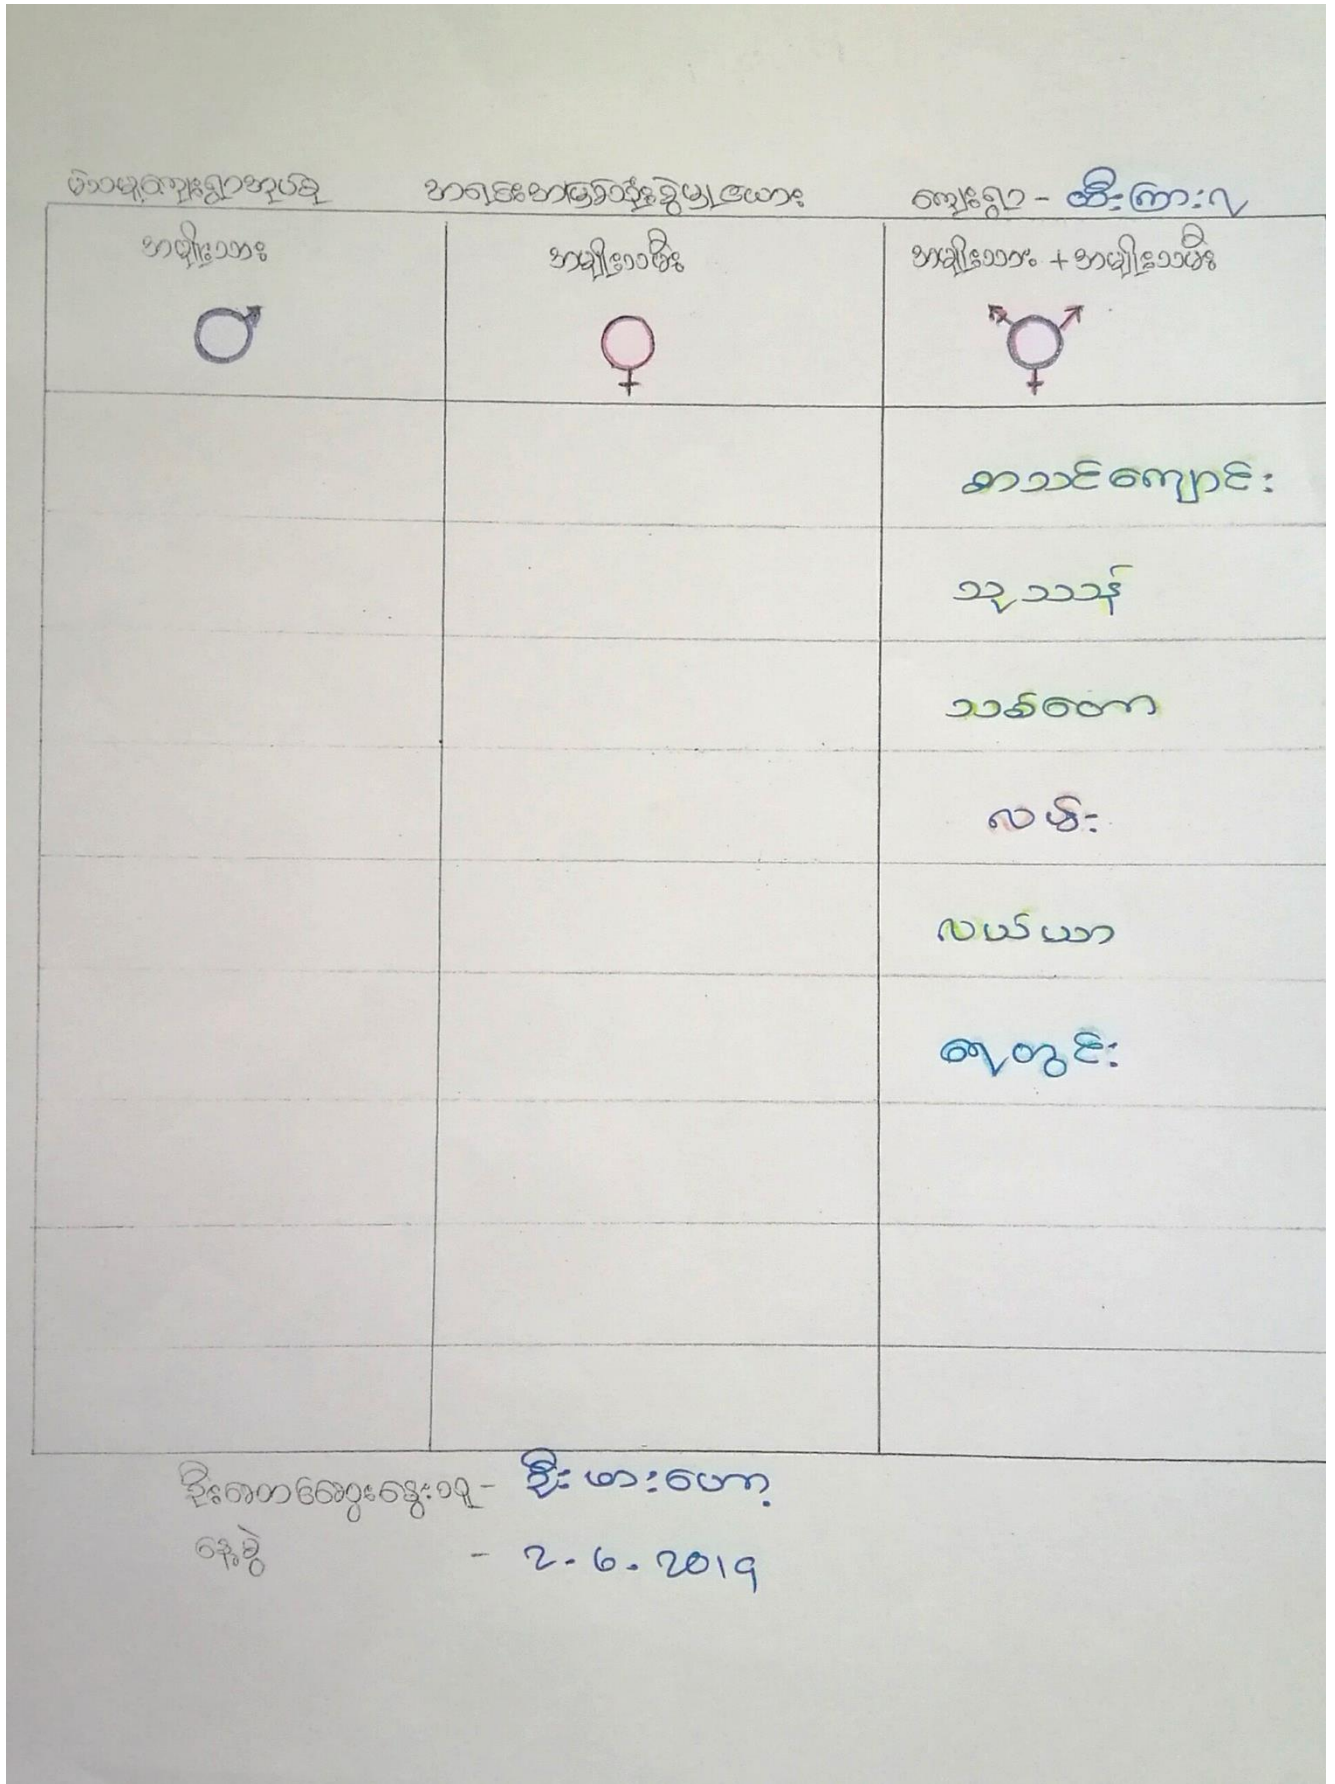 မဲသမူကျေးရွာအုပ်စု အရင်းအမြစ်သုံးစွဲမှုဇယား ကျေးရွာ - ထီးကြားလု
အမျိုးသား အမျိုးသမီး အမျိုးသား + အမျိုးသမီး
စာသင်ကျောင်း
သုသာန်
သစ်တော
လမ်း
လယ်ယာ
ရေတွင်း
ဦးဆောင်ဆွေးနွေးသူ - ဦးဖားဟော့
နေ့စွဲ - 2.6.2019